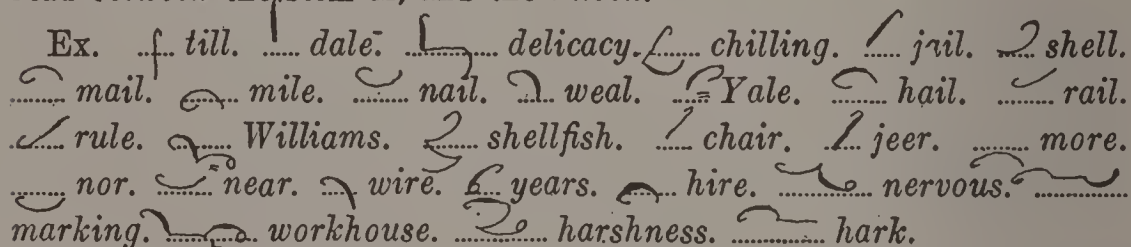 Ex. till. dale. delicacy. chilling. jail. shell.
mail. mile. nail. weal. Yale. hail. rail.
rule. Williams. shellfish. chair. jeer. more.
nor. near. wire. years. hire. nervous.
marking. workhouse. harshness. hark.